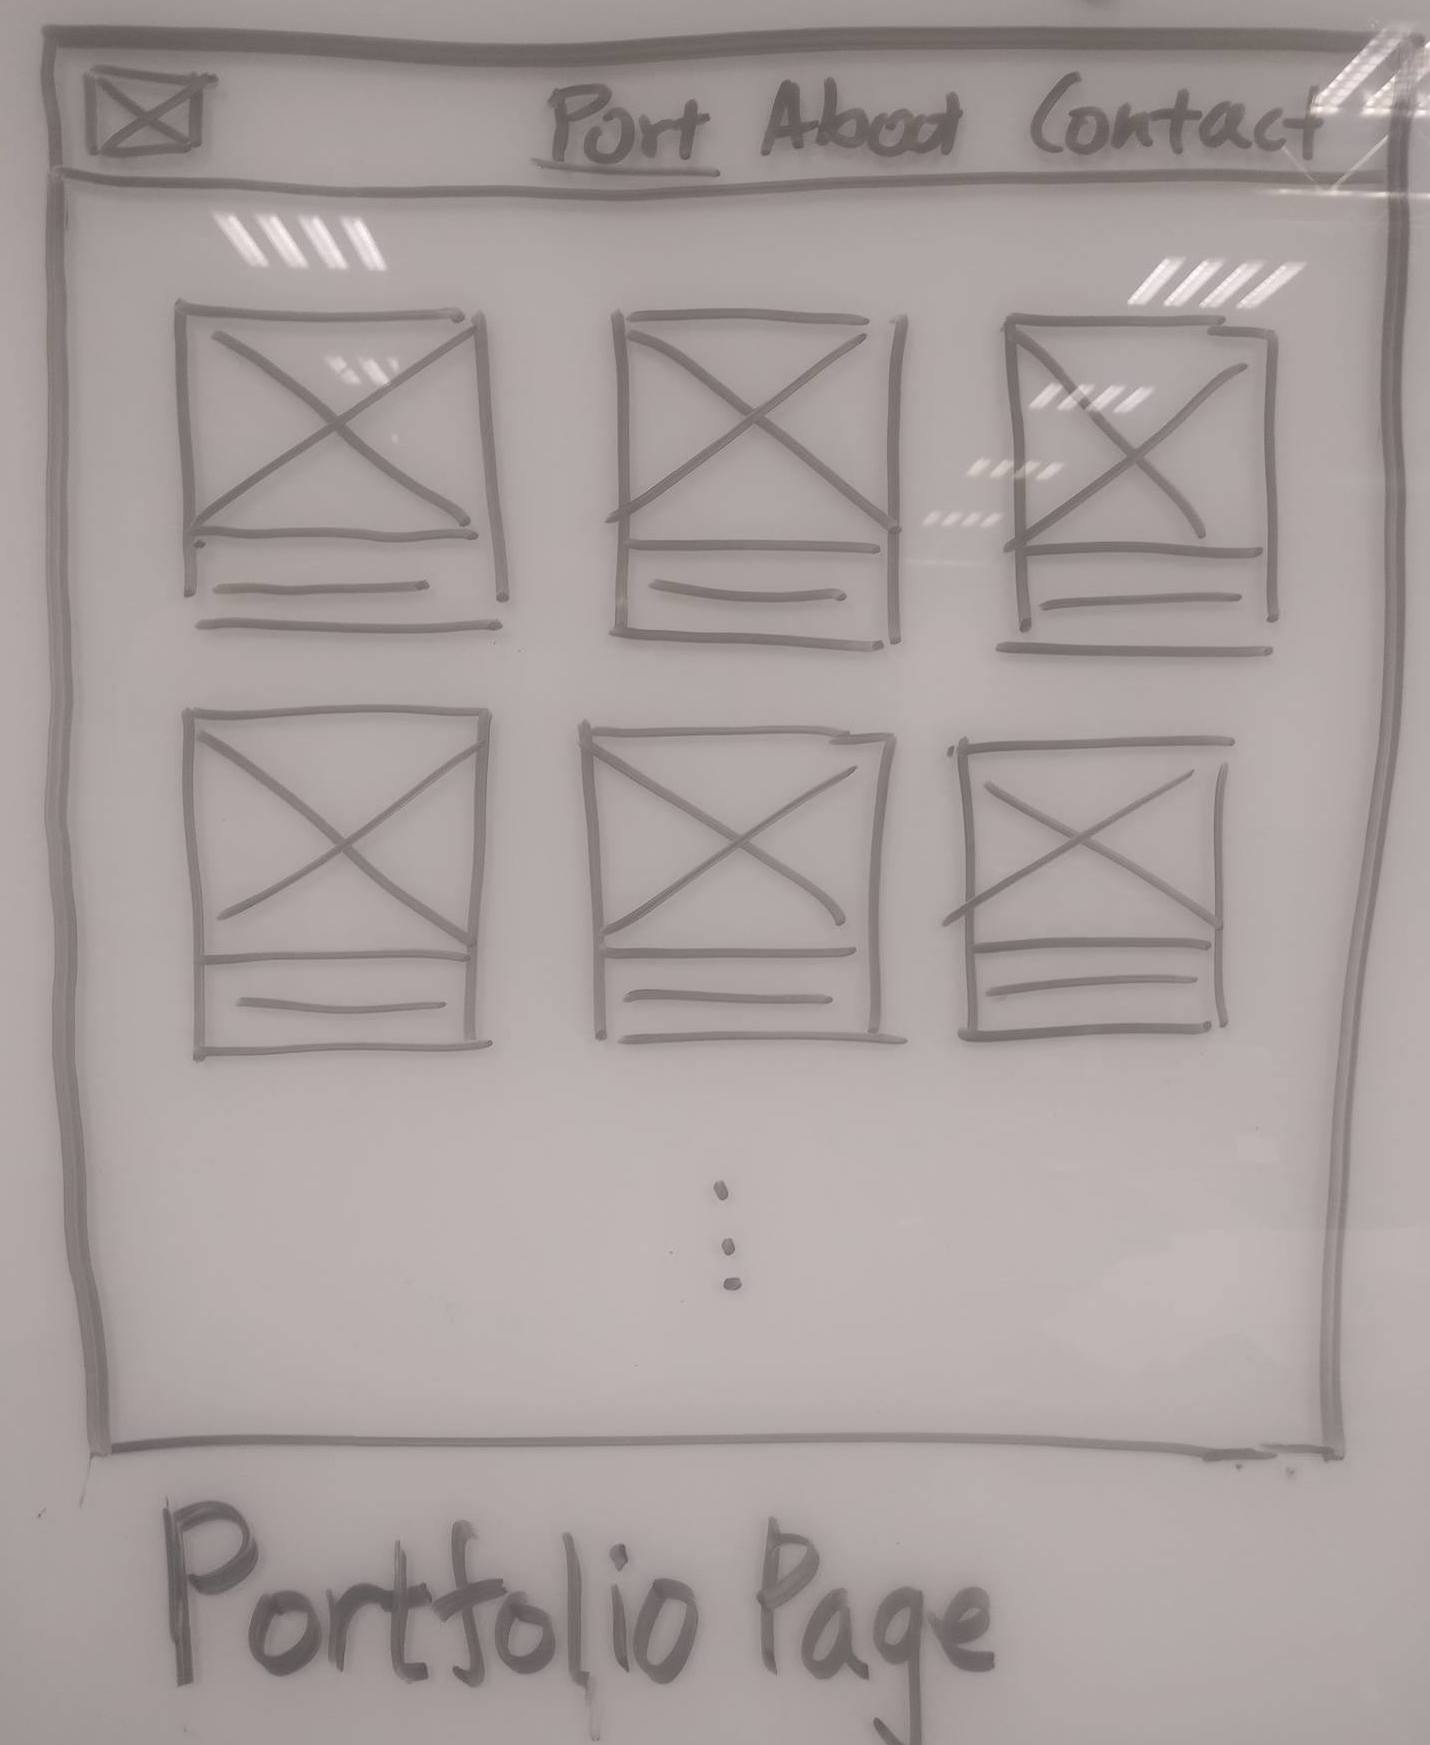 Port About Contact
Portfolio Page